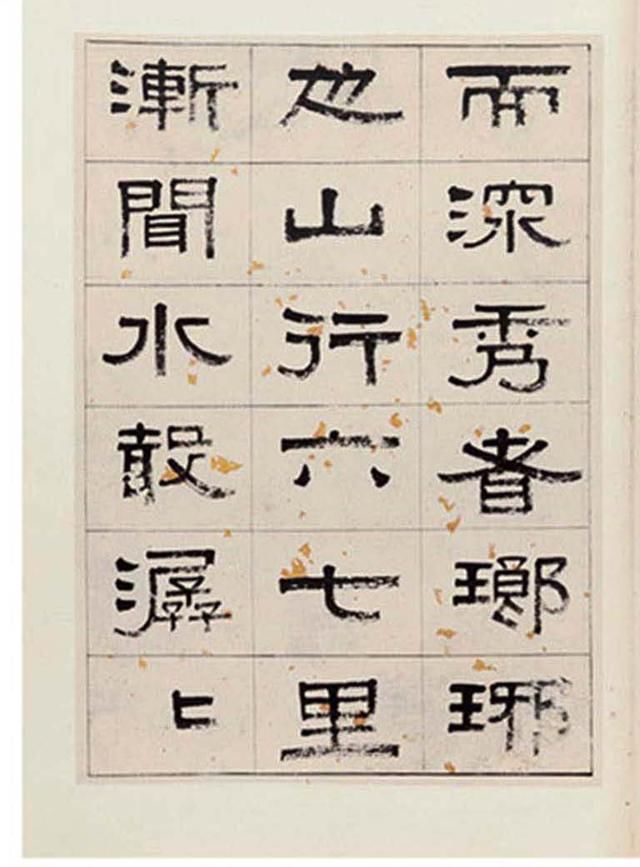 而深秀者瑯琊
也山行六七里
漸聞水聲潺〻